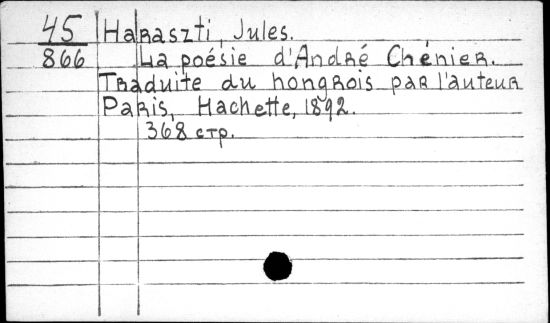 45 Haraszti, Jules.
866 La poésie d'André Chénier.
Traduite du hongrois par l'auteur
Paris, Hachette, 1892.
368 стр.